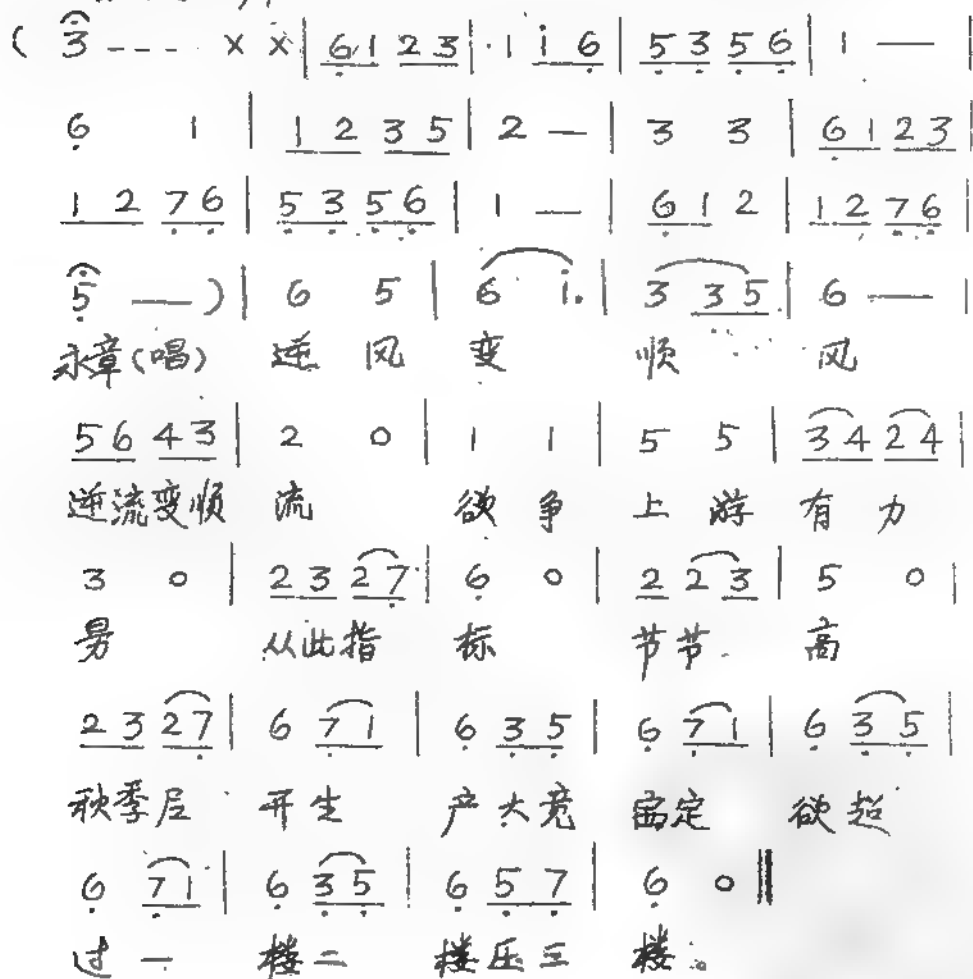 ( 3 - - - - X X | 6 1 2 3 | · 1 i 6 | 5 3 5 6 | 1 — |
6 1 | 1 2 3 5 | 2 — | 3 3 | 6 1 2 3 |
1 2 7 6 | 5 3 5 6 | 1 — | 6 1 2 | 1 2 7 6 |
5 — ) | 6 5 | 6 i. | 3 3 5 | 6 — |
永章(唱) 逆 风 变 顺 风
5 6 4 3 | 2 0 | 1 1 | 5 5 | 3 4 2 4 |
逆流变顺 流 欲 争 上 游 有 力
3 0 | 2 3 2 7 | 6 0 | 2 2 3 | 5 0 |
从此指 标 节节 高
2 3 2 7 | 6 7 1 | 6 3 5 | 6 7 1 | 6 3 5 |
秋季 开生 产大竞 定 欲超
6 7 1 | 6 3 5 | 6 5 7 | 6 0 ‖
过一 楼二 楼压三 楼。